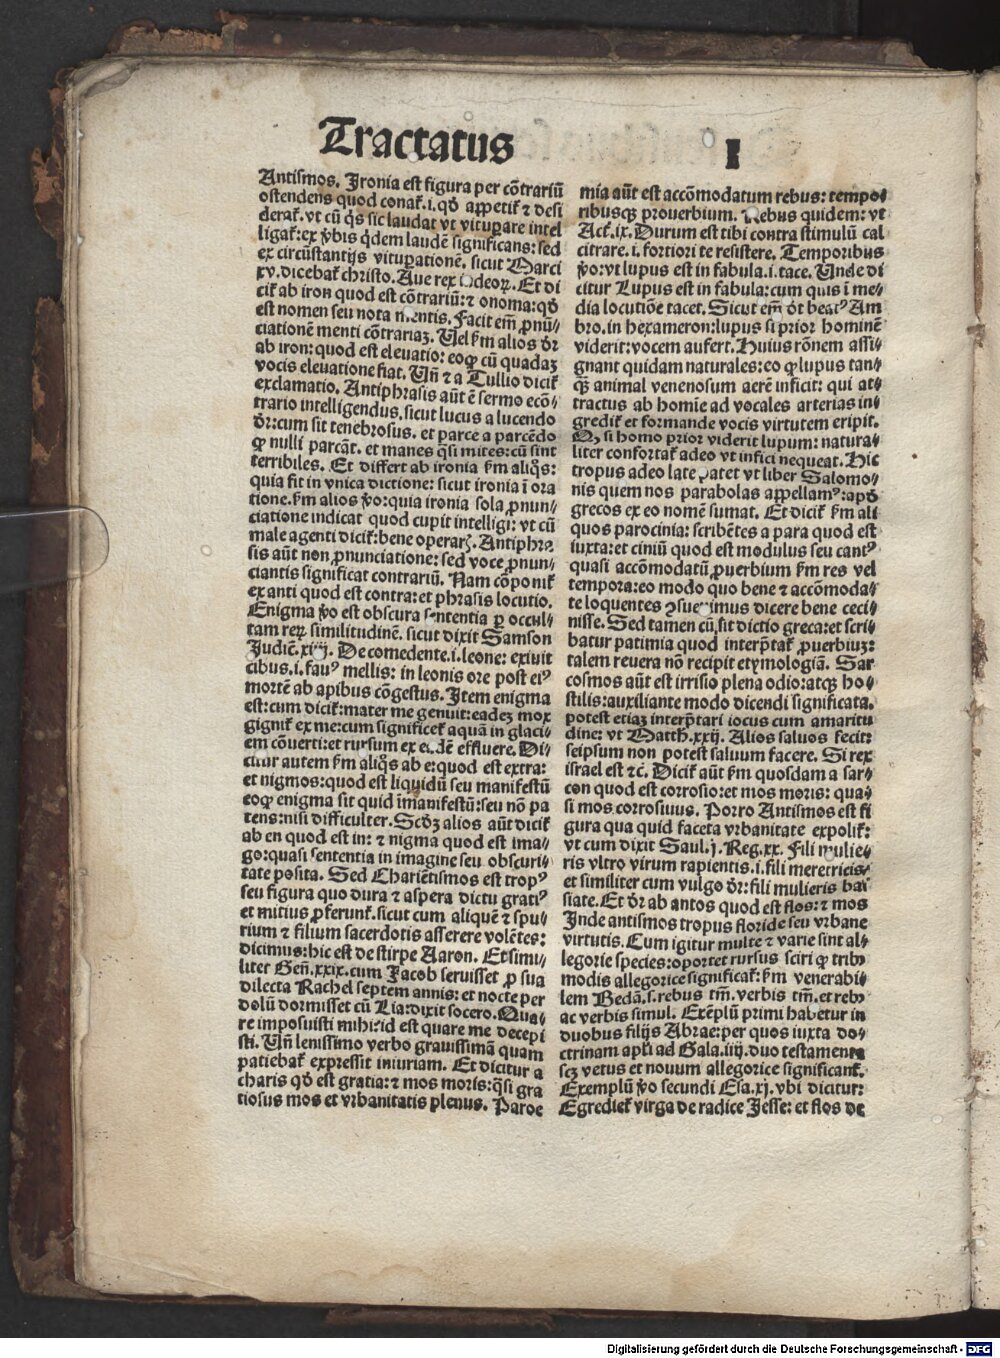 Tractatus
I
Antismos. Ironia est figura per cõtrariũ
ostendens quod conat̃. i. qđ appetit̃ & desi
derat̃. vt cũ q̃s sic laudat vt vituꝑare intel
ligat̃: ex v̾bis q̃dem laudẽ significans: sed
ex circũstantijs vituꝑationẽ. sicut Marci
xv. dicebat̃ christo. Aue rex iudeoꝝ. Et di
cit̃ ab iron quod est cõtrariũ: ⁊ onoma: qđ
est nomen seu nota mentis. Facit em̃ ꝓnũ⸗
ciationẽ menti cõtrariaꝫ. Uel ẜm alios dr̃
ab iron: quod est eleuatio: eoꝙ cũ quadaꝫ
vocis eleuatione fiat. Uñ ⁊ a Tullio dicit̃
exclamatio. Antiphrasis aũt ẽ sermo ecõ⸗
trario intelligendus. sicut lucus a lucendo
dr̃: cum sit tenebrosus. et parce a parcẽdo
ꝙ nulli parcãt. et manes q̃si mites: cũ sint
terribiles. Et differt ab ironia ẜm aliq̃s:
quia fit in vnica dictione: sicut ironia ĩ ora
tione. ẜm alios v̾o: quia ironia sola ꝓnun⸗
ciatione indicat quod cupit intelligi: vt cũ
male agenti dicit̃: bene operaꝝ. Antiphra
sis aũt non ꝓnunciatione: sed voce ꝓnun⸗
ciantis significat contrariũ. Nam cõponit̃
ex anti quod est contra: et phrasis locutio.
Enigma v̾o est obscura sententia ꝑ occul⸗
tam reꝝ similitudinẽ. sicut dixit Samson
Judic̃. xiiij. De comedente. i. leone: exiuit
cibus. i. fauꝰ mellis: in leonis ore post eiꝰ
mortẽ ab apibus cõgestus. Item enigma
est: cum dicit̃: mater me genuit: eadeꝫ mox
gignit̃ ex me: cum significet̃ aquã in glaci⸗
em cõuerti: et rursum ex eadẽ effluere. Di⸗
citur autem ẜm aliq̃s ab e: quod est extra:
et nigmos: quod est liquidũ seu manifestũ
eoꝙ enigma sit quid ĩmanifestũ: seu nõ pa
tens: nisi difficulter. Scđꝫ alios aũt dicit̃
ab en quod est in: ⁊ nigma quod est ima⸗
go: quasi sententia in imagine seu obscuri⸗
tate posita. Sed Charientismos est tropꝰ
seu figura quo dura ⁊ aspera dictu gratiꝰ
et mitius ꝓferunt̃. sicut cum aliquẽ ⁊ spu⸗
rium ⁊ filium sacerdotis asserere volẽtes:
dicimus: hic est de stirpe Aaron. Et simi⸗
liter Geñ. xxix. cum Jacob seruisset ꝓ sua
dilecta Rachel septem annis: et nocte per
dolũ dormisset cũ Lia: dixit socero. Qua⸗
re imposuisti mihi: id est quare me decepi
sti. Uñ lenissimo verbo grauissimã quam
patiebat̃ expressit iniuriam. Et dicitur a
charis qđ est gratia: ⁊ mos moris: q̃si gra
tiosus mos et vrbanitatis plenus. Paroe
mia aũt est accõmodatum rebus: tempo⸗
ribusqꝫ prouerbium. Rebus quidem: vt
Act̃. ix. Durum est tibi contra stimulũ cal
citrare. i. fortiori te resistere. Temporibus
v̾o: vt lupus est in fabula. i. tace. Unde di
citur Lupus est in fabula: cum quis ĩ me⸗
dia locutiõe tacet. Sicut em̃ dt̃ beatꝰ Am
bro. in hexameron: lupus si prior hominẽ
viderit: vocem aufert. Huius rõnem assi⸗
gnant quidam naturales: eo ꝙ lupus tan⸗
qꝫ animal venenosum aerẽ inficit: qui at⸗
tractus ab homĩe ad vocales arterias in⸗
gredit̃ et formande vocis virtutem eripit.
Qꝫ si homo prior viderit lupum: natura⸗
liter confortat̃ adeo vt infici nequeat. Hic
tropus adeo late patet vt liber Salomo⸗
nis quem nos parabolas appellamꝰ: apđ
grecos ex eo nomẽ sumat. Et dicit̃ ẜm ali
quos parocinia: scribẽtes a para quod est
iuxta: et ciniũ quod est modulus seu cantꝰ
quasi accõmodatũ ꝓuerbium ẜm res vel
tempora: eo modo quo bene ⁊ accõmoda⸗
te loquentes ꝯsueuimus dicere bene ceci⸗
nisse. Sed tamen cũ sit dictio greca: et scri⸗
batur patimia quod interp̃tat̃ ꝓuerbiuꝫ:
talem reuera nõ recipit etymologiã. Sar
cosmos aũt est irrisio plena odio: atqꝫ ho⸗
stilis: auxiliante modo dicendi significata.
potest etiaꝫ interp̃tari iocus cum amaritu
dine: vt Matth̃. xxij. Alios saluos fecit:
seipsum non potest saluum facere. Si rex
israel est ⁊c̃. Dicit̃ aũt ẜm quosdam a sar⸗
con quod est corrosio: et mos moris: qua⸗
si mos corrosiuus. Porro Antismos est fi
gura qua quid faceta vrbanitate expolit̃:
vt cum dixit Saul. j. Reg. xx. Fili mulie⸗
ris vltro virum rapientis. i. fili meretricis⸗
et similiter cum vulgo dr̃: fili mulieris bas
siate. Et dr̃ ab antos quod est flos: ⁊ mos
Inde antismos tropus floride seu vrbane
virtutis. Cum igitur multe ⁊ varie sint al⸗
legorie species: oportet rursus sciri ꝙ tribꝰ
modis allegorice significat̃: ẜm venerabi⸗
lem Bedã. s. rebus tm̃. verbis tm̃. et rebꝰ
ac verbis simul. Exẽplũ primi habetur in
duobus filijs Abrae: per quos iuxta do⸗
ctrinam apl̃i ad Gala. iiij. duo testamenta
scꝫ vetus et nouum allegorice significant̃.
Exemplũ v̾o secundi Esa. xj. vbi dicitur:
Egrediet̃ virga de radice Jesse: et flos de
Digitalisierung gefördert durch die Deutsche Forschungsgemeinschaft - DFG